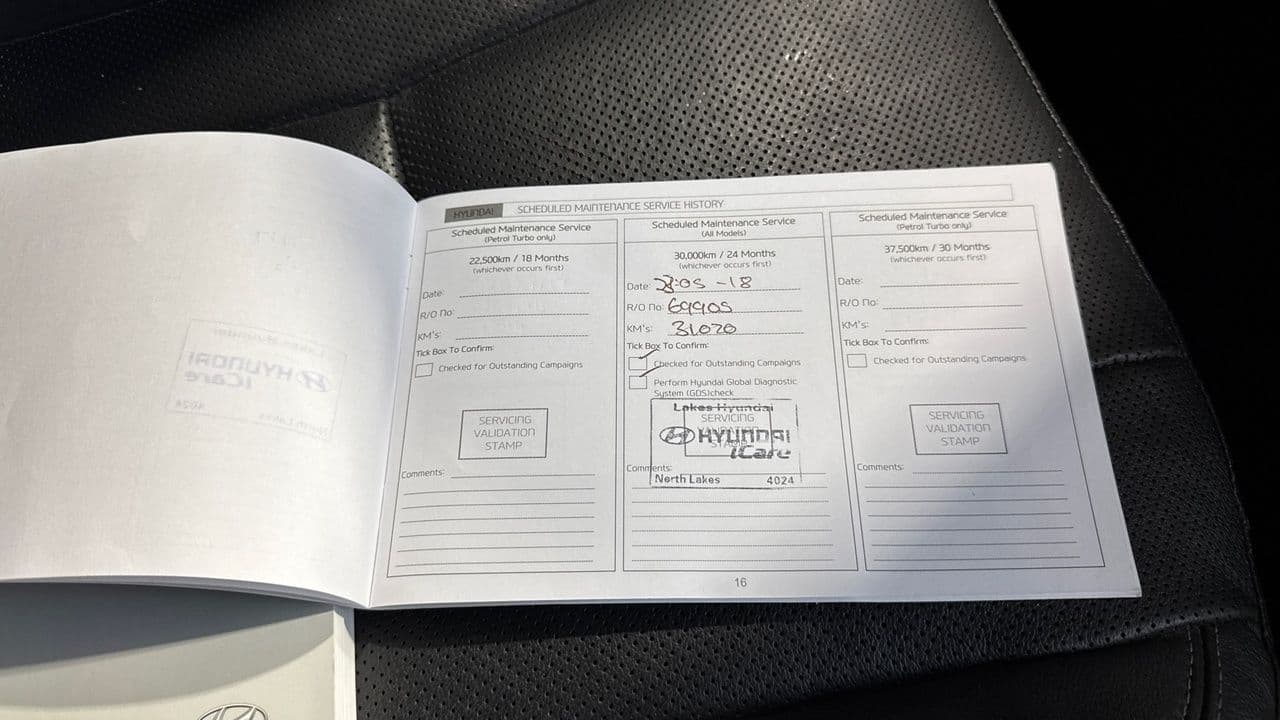 HYUNDAI SCHEDULED MAINTENANCE SERVICE HISTORY
Scheduled Maintenance Service
(Petrol Turbo only)
22,500km / 18 Months
(whichever occurs first)
Date:
R/O No:
KM's:
Tick Box To Confirm:
Checked for Outstanding Campaigns
SERVICING
VALIDATION
STAMP
Comments:
Scheduled Maintenance Service
(All Models)
30,000km / 24 Months
(whichever occurs first)
Date: 28:05 -18
R/O No: 69905
KM's: 31020
Tick Box To Confirm:
Checked for Outstanding Campaigns
Perform Hyundai Global Diagnostic
System (GDS)check
Lakes Hyundai
SERVICING
VALIDATION
STAMP
HYUNDAI
iCare
Comments:
North Lakes 4024
Scheduled Maintenance Service
(Petrol Turbo only)
37,500km / 30 Months
(whichever occurs first)
Date:
R/O No:
KM's:
Tick Box To Confirm:
Checked for Outstanding Campaigns
SERVICING
VALIDATION
STAMP
Comments:
16